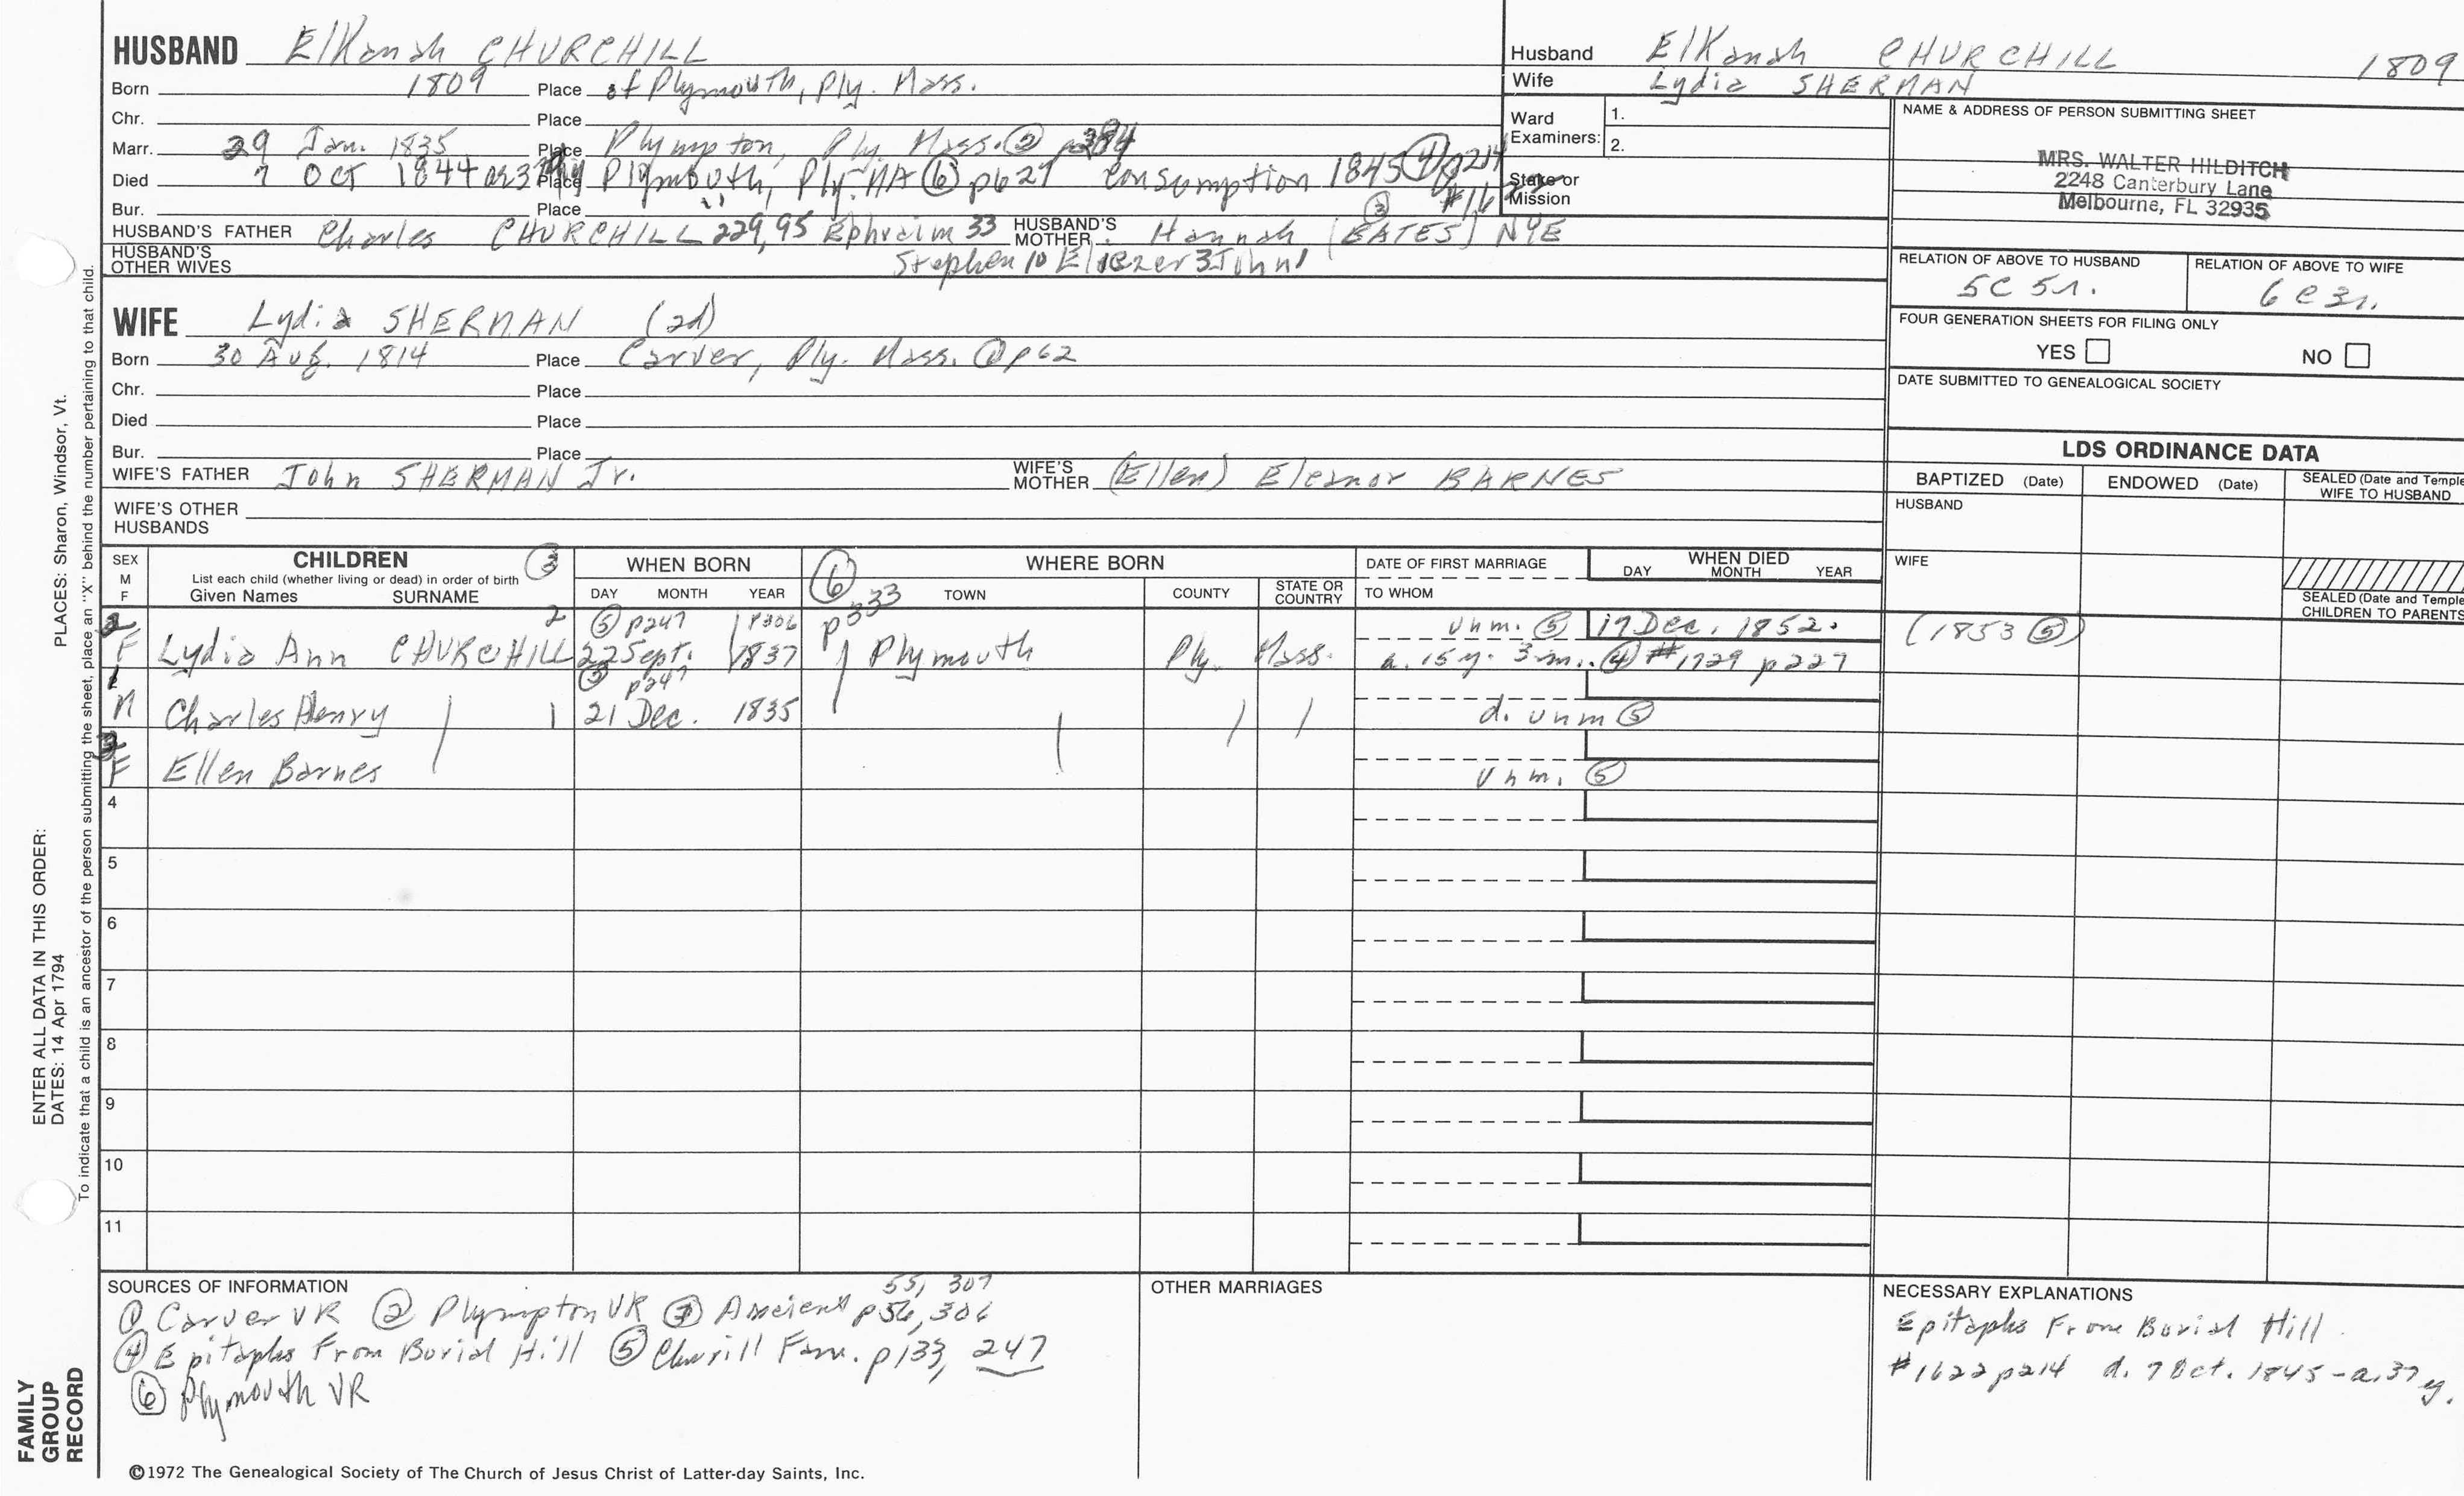 HUSBAND Elkanah CHURCHILL
Born 1809 Place of Plymouth, Ply. Mass.
Chr. Place
Marr. 29 Jan. 1835 Place Plympton, Ply. Mass. ② p384
Died 7 Oct 1844 Place Plymouth, Ply. MA ⑥ p627 Consumption 1845 ④ p214
Bur. Place
HUSBAND'S FATHER Charles CHURCHILL 229, 95 Ephraim 33 HUSBAND'S MOTHER Hannah (BATES) NYE ③
HUSBAND'S OTHER WIVES Stephen 10 Eliezer 3 John 1
WIFE Lydia SHERMAN (2d)
Born 30 Aug. 1814 Place Carver, Ply. Mass. ① p62
Chr. Place
Died Place
Bur. Place
WIFE'S FATHER John SHERMAN Jr. WIFE'S MOTHER (Ellen) Eleanor BARNES
WIFE'S OTHER HUSBANDS
Husband Elkanah CHURCHILL 1809
Wife Lydia SHERMAN
Ward Examiners: 1.
2.
Stake or Mission
NAME & ADDRESS OF PERSON SUBMITTING SHEET
MRS. WALTER HILDITCH
2248 Canterbury Lane
Melbourne, FL 32935
RELATION OF ABOVE TO HUSBAND RELATION OF ABOVE TO WIFE
5C 5r. 6C 3r.
FOUR GENERATION SHEETS FOR FILING ONLY
YES NO
DATE SUBMITTED TO GENEALOGICAL SOCIETY
LDS ORDINANCE DATA
BAPTIZED (Date) ENDOWED (Date) SEALED (Date and Temple
WIFE TO HUSBAND
HUSBAND
WIFE
SEALED (Date and Temple
CHILDREN TO PARENTS
SEX M F CHILDREN ③ WHEN BORN ⑥ p333 WHERE BORN DATE OF FIRST MARRIAGE WHEN DIED
List each child (whether living or dead) in order of birth
Given Names SURNAME DAY MONTH YEAR TOWN COUNTY STATE OR COUNTRY TO WHOM DAY MONTH YEAR
2 ⑤ p247 p306 unm. ⑤ 17 Dec. 1852. (1853 ⑤)
F Lydia Ann CHURCHILL 22 Sept. 1837 Plymouth Ply. Mass. a. 15 y. 3 m. ④ #1729 p227
1 ⑤ p247
M Charles Henry 1 21 Dec. 1835 d. unm ⑤
3
F Ellen Barnes unm. ⑤
4
5
6
7
8
9
10
11
SOURCES OF INFORMATION 55, 307
① Carver VR ② Plympton VR ③ Ancient p56, 306
④ Epitaphs From Burial Hill ⑤ Fam. p133, 247
⑥ Plymouth VR
OTHER MARRIAGES
NECESSARY EXPLANATIONS
Epitaphs From Burial Hill
#1622 p214 d. 7 Oct. 1845 - a. 37 y.
©1972 The Genealogical Society of The Church of Jesus Christ of Latter-day Saints, Inc.
ENTER ALL DATA IN THIS ORDER:
DATES: 14 Apr 1794 PLACES: Sharon, Windsor, Vt.
To indicate that a child is an ancestor of the person submitting the sheet, place an "X" behind the number pertaining to that child.
FAMILY
GROUP
RECORD